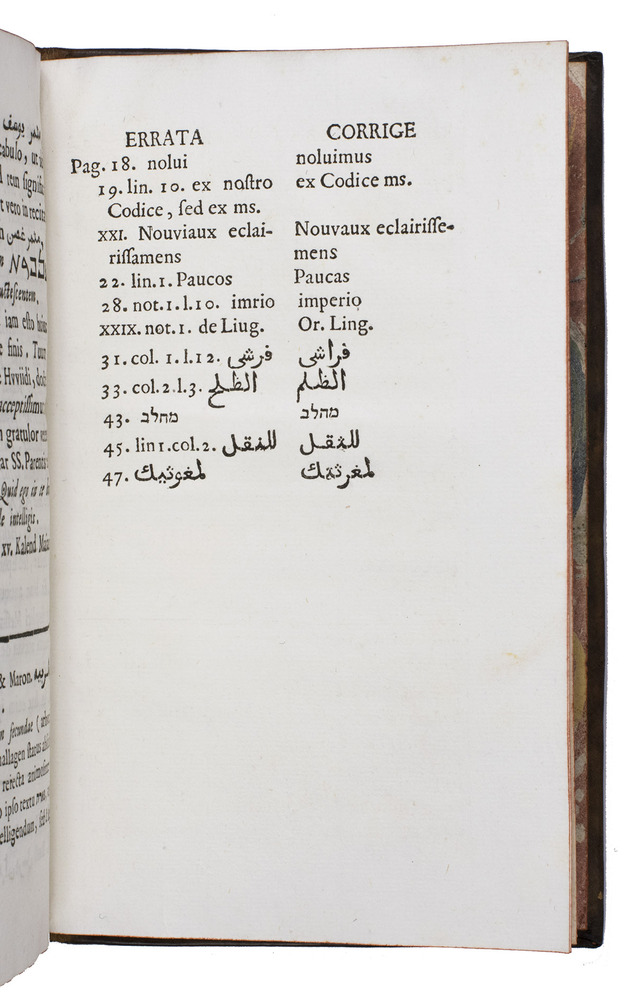 ERRATA CORRIGE
Pag. 18. nolui noluimus
19. lin. 10. ex noſtro ex Codice ms.
Codice, ſed ex ms.
XXI. Nouviaux eclai- Nouvaux eclairiſſe-
riſſamens mens
22. lin. 1. Paucos Paucas
28. not. 1. l. 10. imrio imperio
XXIX. not. 1. de Liug. Or. Ling.
31. col. 1. l. 12. فرشى فراشى
33. col. 2. l. 3. الظلح الظلم
43. מחלב מהלב
45. lin 1. col. 2. للنقل للثقل
47. لمغوثيك لمغرثتك
cabulo, ut
rem ſignifi
t vero in recit
iam eſto
e finis, Tuu
Hvviidi, doc
acceptiſſimu
gratulor
ar SS. Parenti
Quid ego
le intelligis.
xv. Kalend. Ma
& Maron.
ſecundae
reiecta
ipſo textu
elligendum, ſed